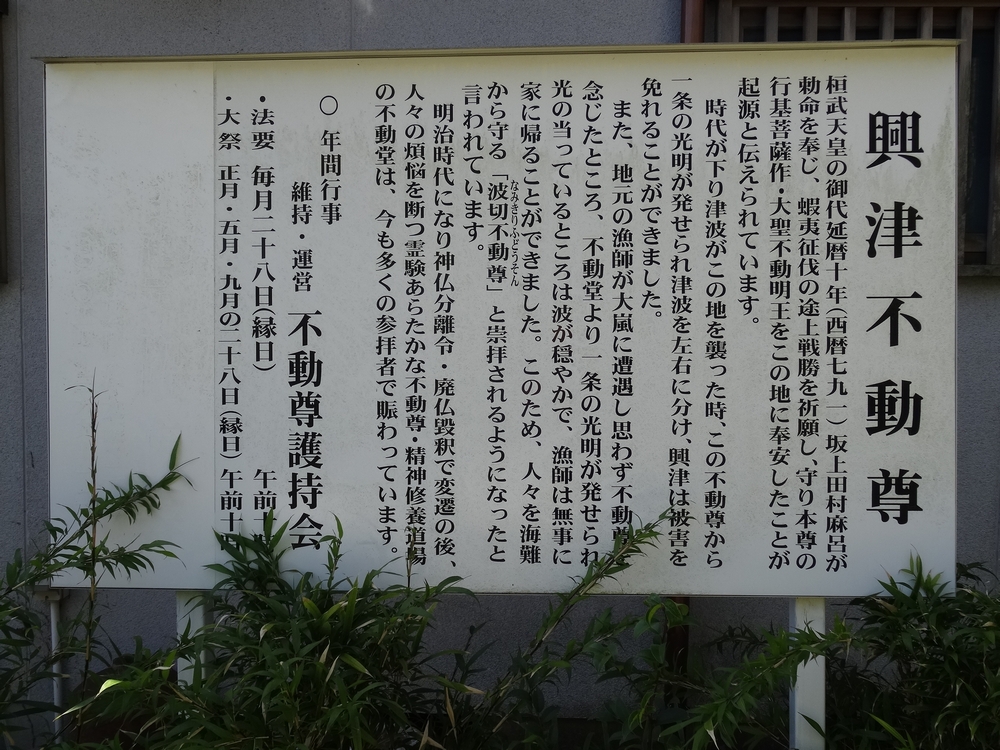 興津不動尊
桓武天皇の御代延暦十年(西暦七九一)坂上田村麻呂が
勅命を奉じ、蝦夷征伐の途上戦勝を祈願し、守り本尊の
行基菩薩作・大聖不動明王をこの地に奉安したことが
起源と伝えられています。
時代が下り津波がこの地を襲った時、この不動尊から
一条の光明が発せられ津波を左右に分け、興津は被害を
免れることができました。
また、地元の漁師が大嵐に遭遇し思わず不動尊
念じたところ、不動堂より一条の光明が発せられ
光の当っているところは波が穏やかで、漁師は無事に
家に帰ることができました。このため、人々を海難
から守る「波切不動尊」と崇拝されるようになったと
なみきりふどうそん
言われています。
明治時代になり神仏分離令・廃仏毀釈で変遷の後、
人々の煩悩を断つ霊験あらたかな不動尊・精神修養道場
の不動堂は、今も多くの参拝者で賑わっています。
○ 年間行事
維持・運営 不動尊護持会
・法要 毎月二十八日(縁日) 午前十
・大祭 正月・五月・九月の二十八日(縁日) 午前十